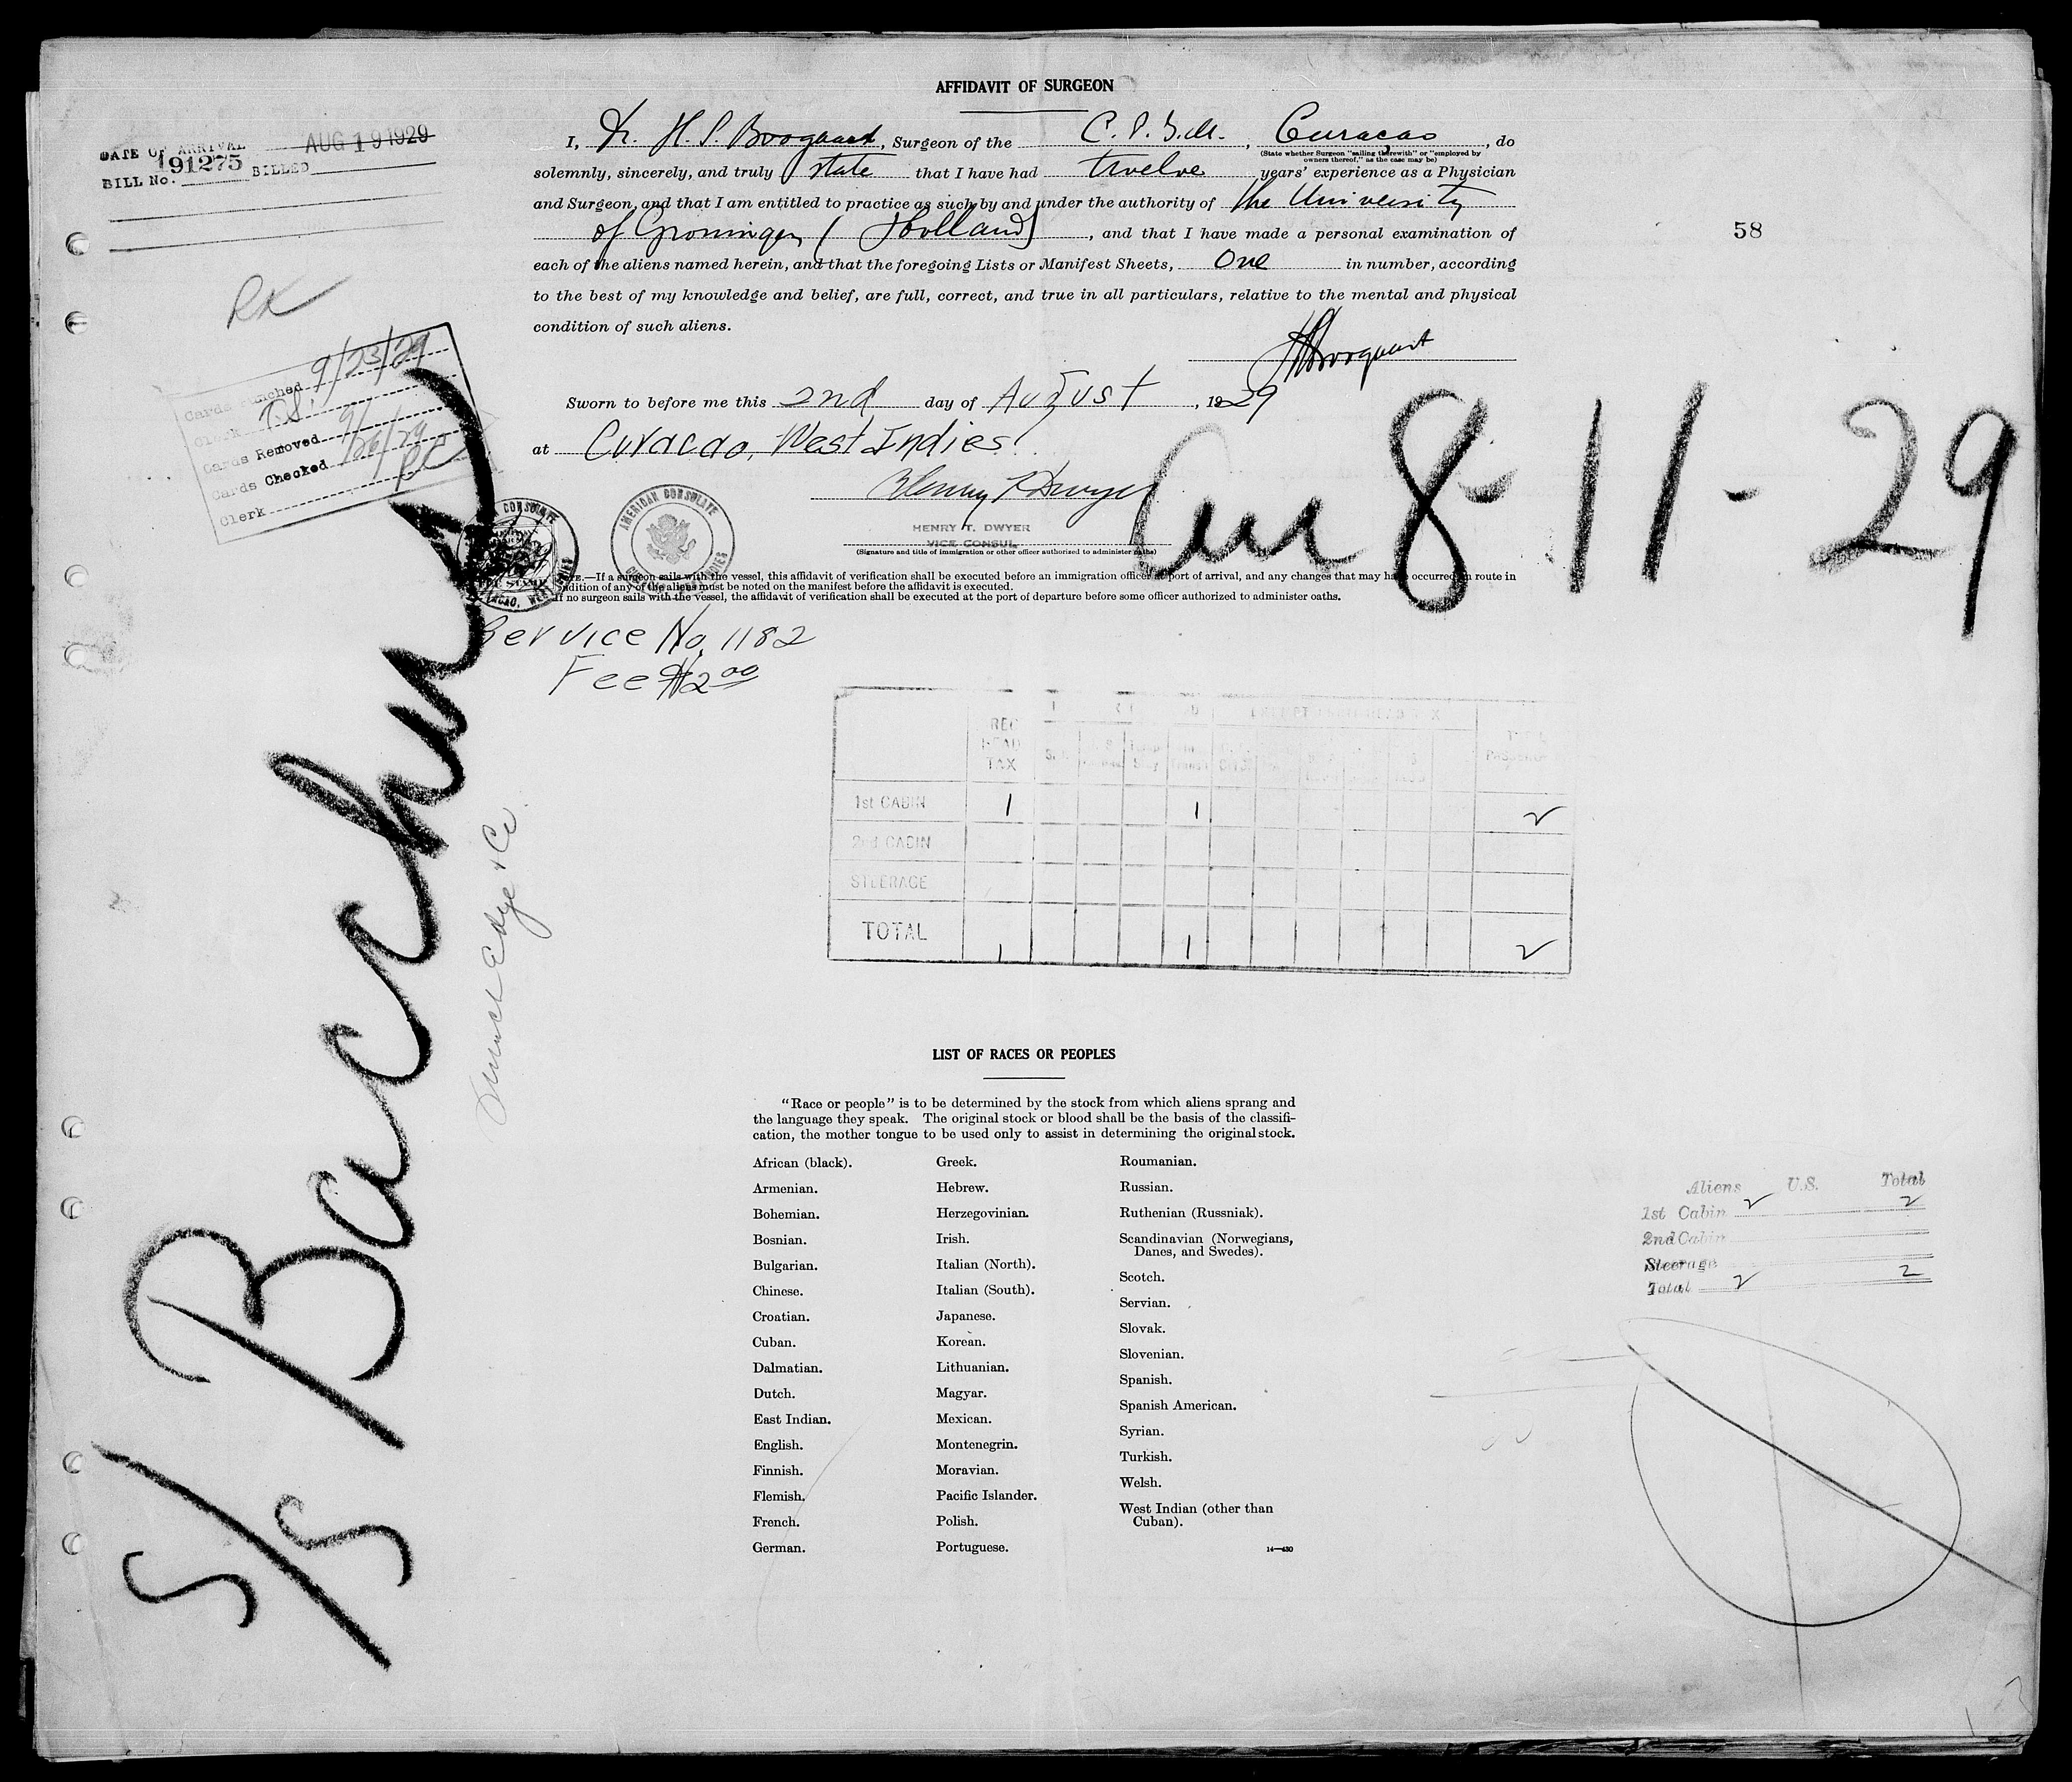 AFFIDAVIT OF SURGEON
DATE OF ARRIVAL AUG 19 1929
BILL No. 191275 BILLED
I, Dr. H. P. Boogaart, Surgeon of the C.P.I.M., Curacao, do
(State whether Surgeon "sailing therewith" or "employed by
owners thereof," as the case may be)
solemnly, sincerely, and truly state that I have had twelve years' experience as a Physician
and Surgeon, and that I am entitled to practice as such by and under the authority of the University
of Groningen (Holland), and that I have made a personal examination of
each of the aliens named herein, and that the foregoing Lists or Manifest Sheets, One in number, according
to the best of my knowledge and belief, are full, correct, and true in all particulars, relative to the mental and physical
condition of such aliens.
58
Cards Punched 9/23/29
Clerk
Cards Removed
Cards Checked 9/26/29
Clerk
Sworn to before me this 2nd day of August, 1929
at Curacao, West Indies.
Henry T. Dwyer
HENRY T. DWYER
VICE CONSUL
(Signature and title of immigration or other officer authorized to administer oaths)
AMERICAN CONSULATE
8-11-29
NOTE.—If a surgeon sails with the vessel, this affidavit of verification shall be executed before an immigration officer at port of arrival, and any changes that may have occurred en route in
condition of any of the aliens must be noted on the manifest before the affidavit is executed.
If no surgeon sails with the vessel, the affidavit of verification shall be executed at the port of departure before some officer authorized to administer oaths.
Service No. 1182
Fee $2.00
S/S Bacchus
REC HEAD TAX
1st CABIN 1 1 2
2nd CABIN
STEERAGE
TOTAL 1 1 2
LIST OF RACES OR PEOPLES
"Race or people" is to be determined by the stock from which aliens sprang and
the language they speak. The original stock or blood shall be the basis of the classifi-
cation, the mother tongue to be used only to assist in determining the original stock.
African (black).
Armenian.
Bohemian.
Bosnian.
Bulgarian.
Chinese.
Croatian.
Cuban.
Dalmatian.
Dutch.
East Indian.
English.
Finnish.
Flemish.
French.
German.
Greek.
Hebrew.
Herzegovinian.
Irish.
Italian (North).
Italian (South).
Japanese.
Korean.
Lithuanian.
Magyar.
Mexican.
Montenegrin.
Moravian.
Pacific Islander.
Polish.
Portuguese.
Roumanian.
Russian.
Ruthenian (Russniak).
Scandinavian (Norwegians,
Danes, and Swedes).
Scotch.
Servian.
Slovak.
Slovenian.
Spanish.
Spanish American.
Syrian.
Turkish.
Welsh.
West Indian (other than
Cuban).
14—430
Aliens U.S. Total
1st Cabin 2 2
2nd Cabin
Steerage
Total 2 2